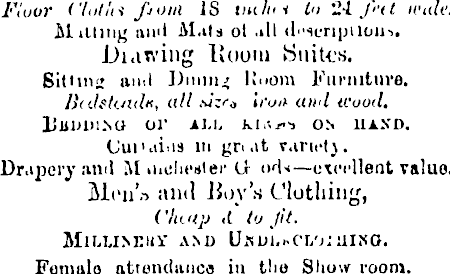 Floor Cloths from 18 inches to 24 feet wide.
Matting and Mats of all descriptions.
Drawing Room Suites.
Sitting and Dining Room Furniture.
Bedsteads, all sizes iron and wood.
BEDDING OF ALL KINDS ON HAND.
Curtains in great variety.
Drapery and Manchester Goods—excellent value.
Men's and Boy's Clothing,
Cheap & to fit.
MILLINERY AND UNDERCLOTHING.
Female attendance in the Show room.